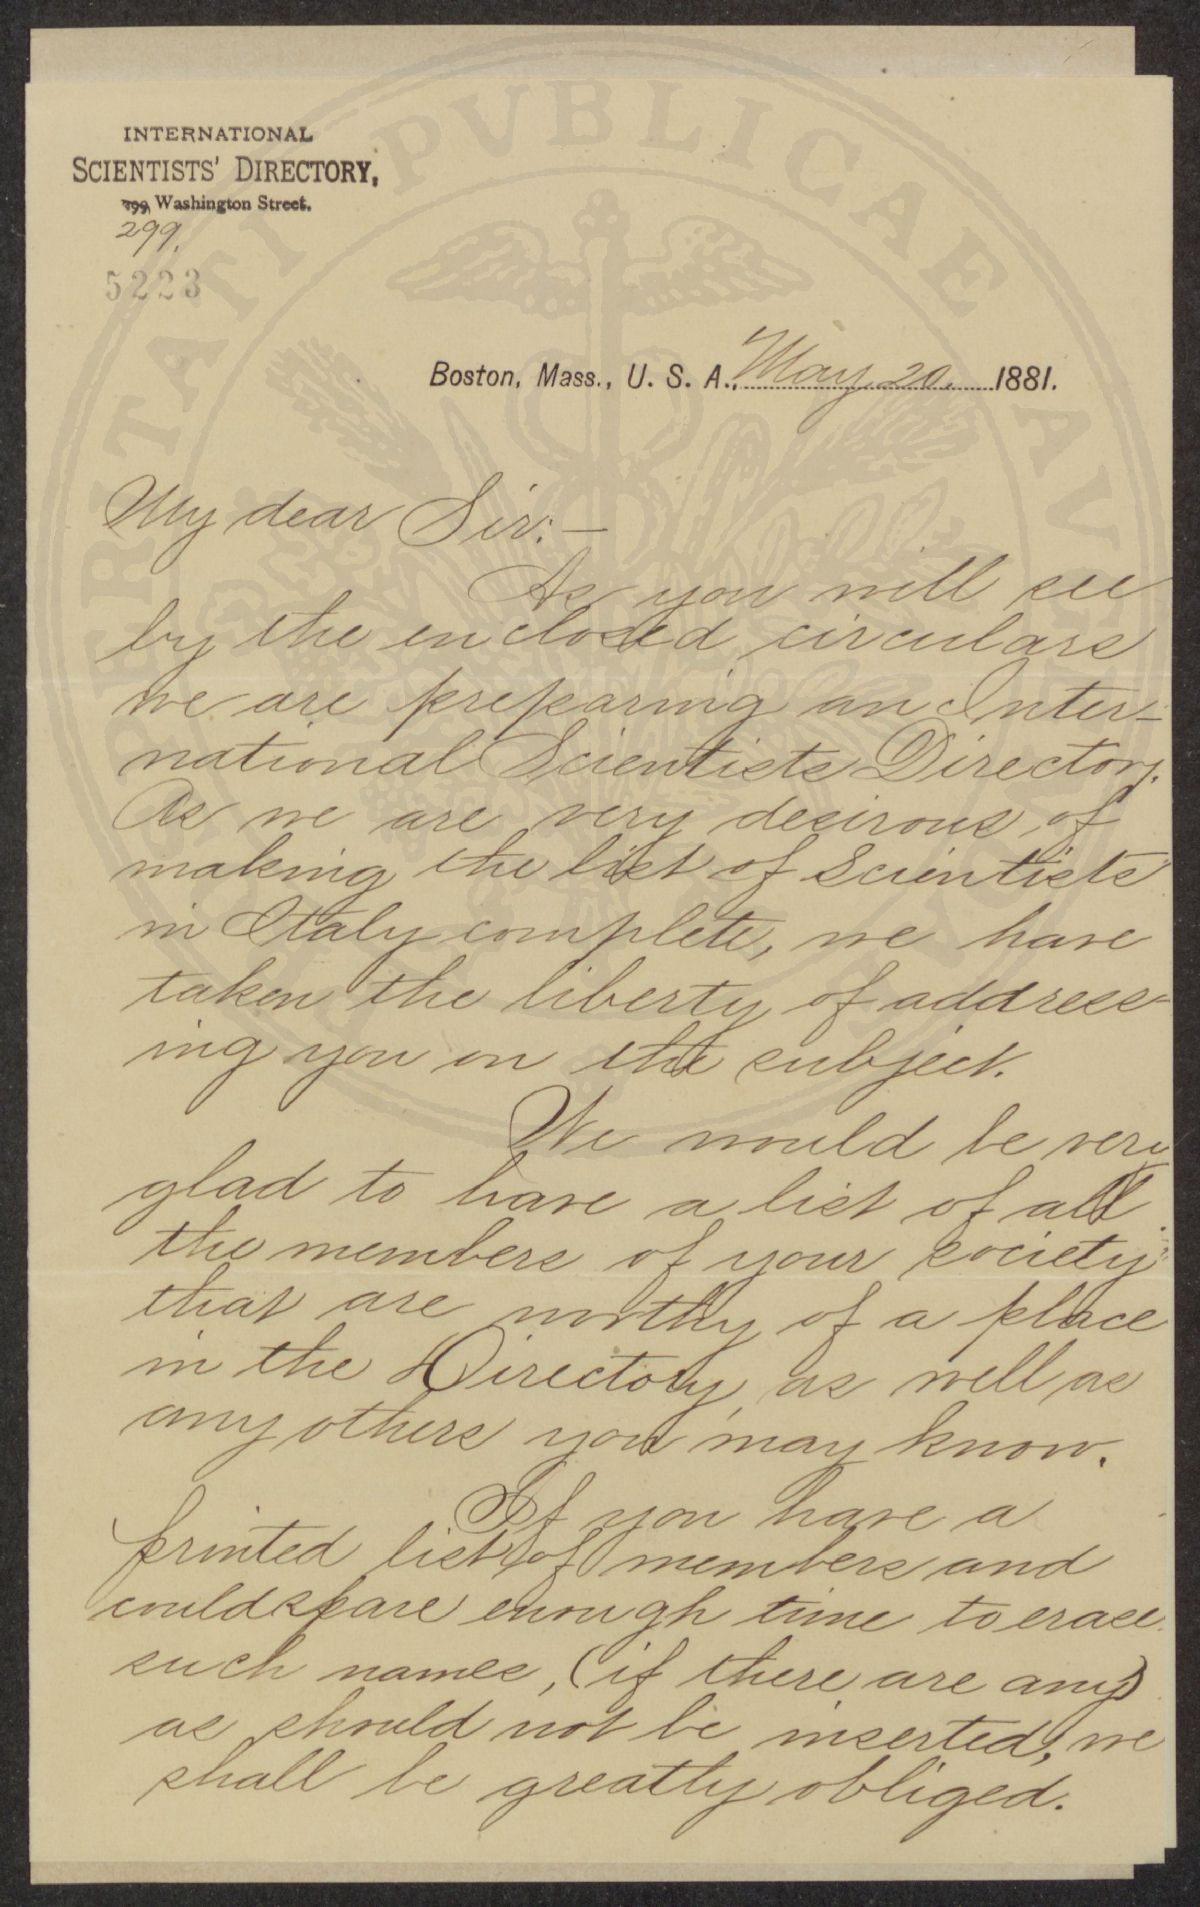 INTERNATIONAL
SCIENTISTS' DIRECTORY,
399, Washington Street.
299.
5223
Boston, Mass., U. S. A., May 20, 1881.
My dear Sir:—
As you will see
by the enclosed circulars
we are preparing an Inter-
national Scientists Directory.
As we are very desirous of
making the list of Scientists
in Italy complete, we have
taken the liberty of address-
ing you on the subject.
We would be very
glad to have a list of all
the members of your society
that are worthy of a place
in the Directory, as well as
any others you may know.
If you have a
printed list of members and
could spare enough time to erase
such names, (if there are any)
as should not be inserted, we
shall be greatly obliged.